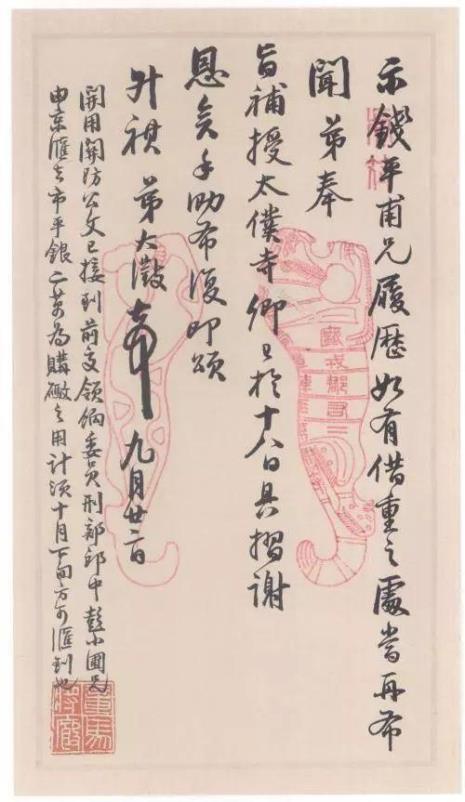 示錢平甫兄履歷如有借重之處當再布
聞弟奉
旨補授太僕寺卿已於十八日具摺謝
恩矣手泐布復即頌
升祺弟大澂頓首九月廿二日
開用關防公文已接到前交領餉委員刑部郎中彭小圃兄
由京匯去市平銀二萬為購礮之用計須十月下旬方可匯到也